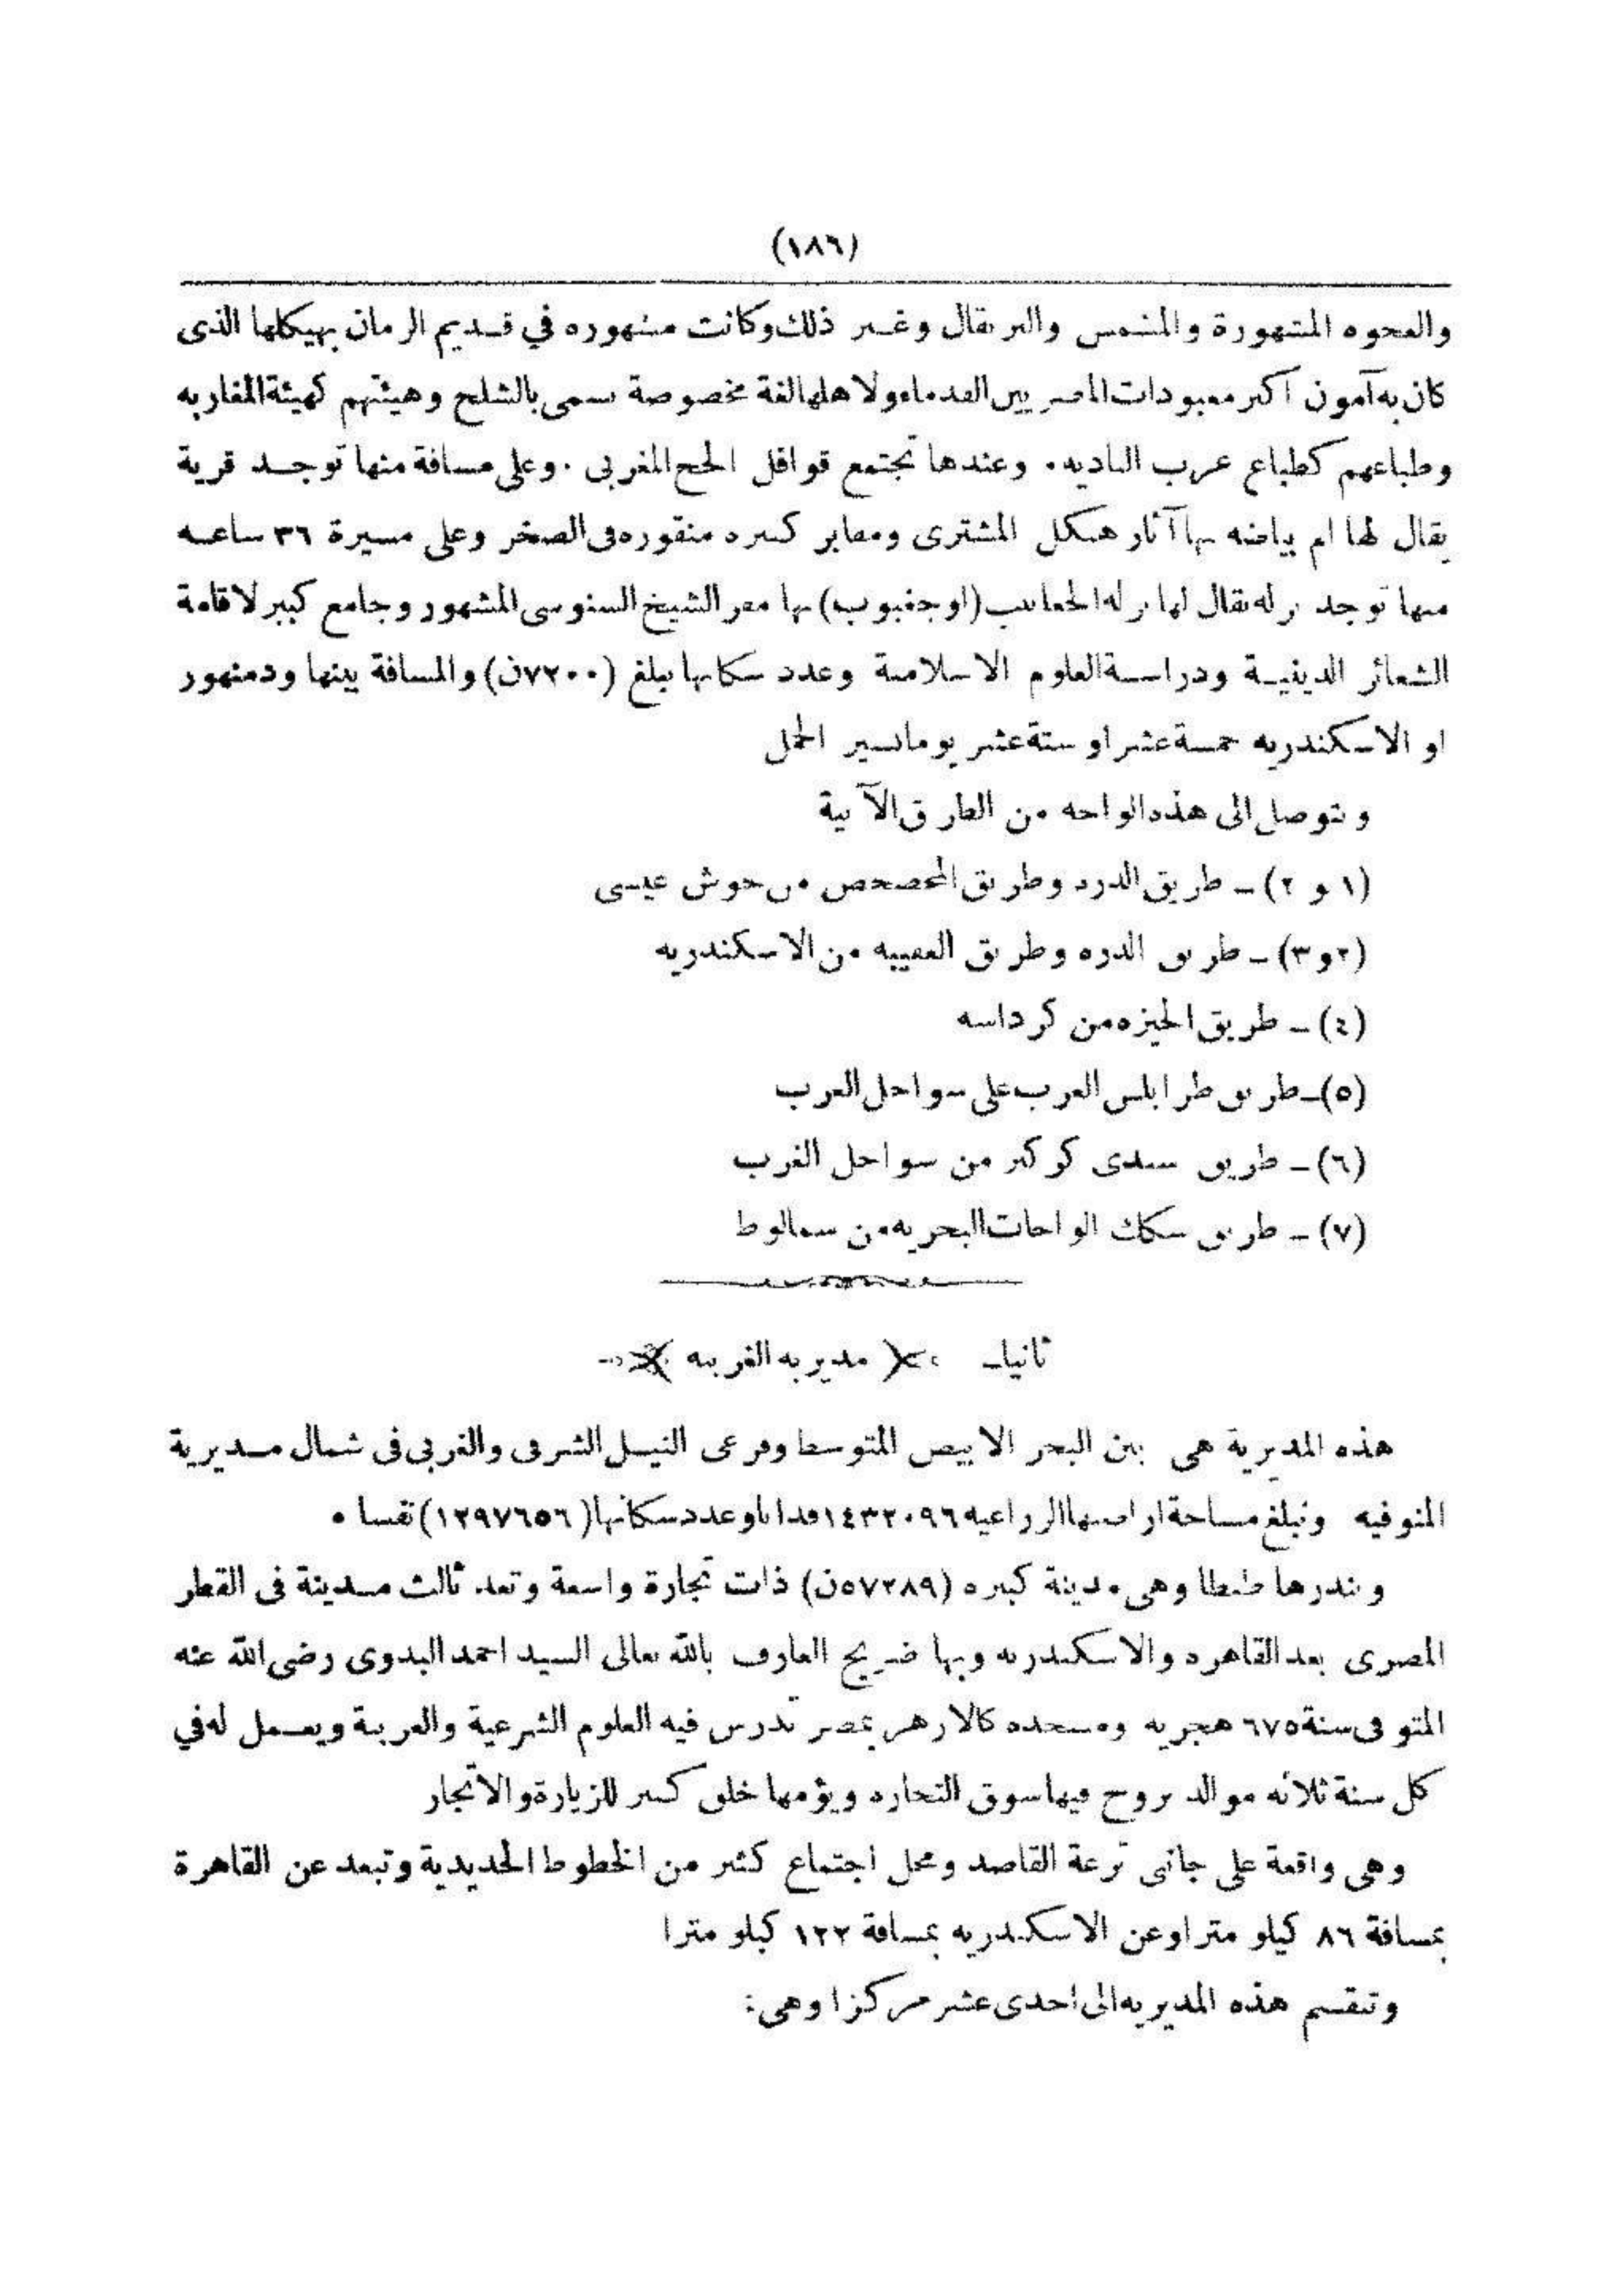 (١٨٦)
والعجوه المشهورة والمشمس والبرتقال وغير ذلك وكانت مشهوره في قديم الزمان بهيكلها الذى
كان به آمون اكبر معبودات المصريين القدماء ولاهلها لغة مخصوصة تسمى بالشلح وهيئتهم كهيئة المغاربه
وطباعهم كطباع عرب الباديه. وعندها تجتمع قوافل الحج المغربى. وعلى مسافة منها توجد قرية
يقال لها ام بياضه بها آثار هيكل المشترى ومقابر كبيره منقوره فى الصخر وعلى مسيرة ٣٦ ساعه
منها توجد نزله يقال لها نزله (اوجغبوب) بها مقر الشيخ السنوسى المشهور وجامع كبير لاقامة
الشعائر الدينية ودراسة العلوم الاسلامية وعدد سكانها يبلغ (٧٢٠٠ن) والمسافة بينها ودمنهور
او الاسكندريه خمسة عشر او ستة عشر يوما بسير الجمل
ويتوصل الى هذه الواحه من الطرق الآتية
(١ و ٢) ـ طريق الدرد وطريق المحصحص من حوش عيسى
(٢و٣) ـ طريق الدره وطريق العقيبه من الاسكندريه
(٤) ـ طريق الجيزه من كرداسه
(٥) ـ طريق طرابلس الغرب على سواحل الغرب
(٦) ـ طريق سيدى كركير من سواحل الغرب
(٧) ـ طريق سكك الواحات البحريه من سمالوط
ثانيا ـ مديريه الغربيه
هذه المديرية هى بين البحر الابيض المتوسط وفرعى النيل الشرقى والغربى فى شمال مديرية
المنوفيه وتبلغ مساحة اراضيها الزراعيه ١٤٣٢٠٩٦ فدانا وعدد سكانها (١٢٩٧٦٥٦) نفسا ٠
وبندرها طنطا وهى مدينة كبيره (٥٧٢٨٩ن) ذات تجارة واسعة وتعد ثالث مدينة فى القطر
المصرى بعد القاهره والاسكندريه وبها ضريح العارف بالله تعالى السيد احمد البدوى رضى الله عنه
المتوفى سنة ٦٧٥ هجريه ومسجده كالازهر بمصر تدرس فيه العلوم الشرعية والعربية ويعمل له في
كل سنة ثلاثه موالد يروج فيها سوق التجاره ويؤمها خلق كثير للزيارة والاتجار
وهى واقعة على جانبى ترعة القاصد ومحل اجتماع كثير من الخطوط الحديدية وتبعد عن القاهرة
بمسافة ٨٦ كيلو مترا وعن الاسكندريه بمسافة ١٢٢ كيلو مترا
وتنقسم هذه المديريه الى احدى عشر مركزا وهى: